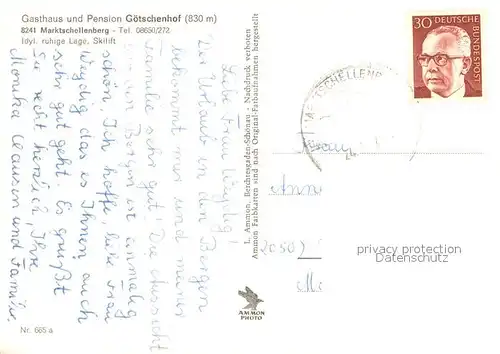 Gasthaus und Pension Götschenhof (830 m)
8241 Marktschellenberg - Tel. 08650/272
Idyl. ruhige Lage, Skilift
Liebe Frau Weydig!
Der Urlaub in den Bergen
bekommt mir und meiner
Familie sehr gut! Die Aussicht
von den Bergen ist einmalig
schön. Ich hoffe, liebe Frau
Weydig das es Ihnen auch
sehr gut geht. Es grüßt
Sie recht herzlich, Ihre
Monika Clausen und Familie.
Nr. 665 a
L. Ammon, Berchtesgaden-Schönau - Nachdruck verboten
Ammon Farbkarten sind nach Original-Farbaufnahmen hergestellt
AMMON
PHOTO
30 DEUTSCHE
BUNDESPOST
Frau
Anne
2050
privacy protection
Datenschutz